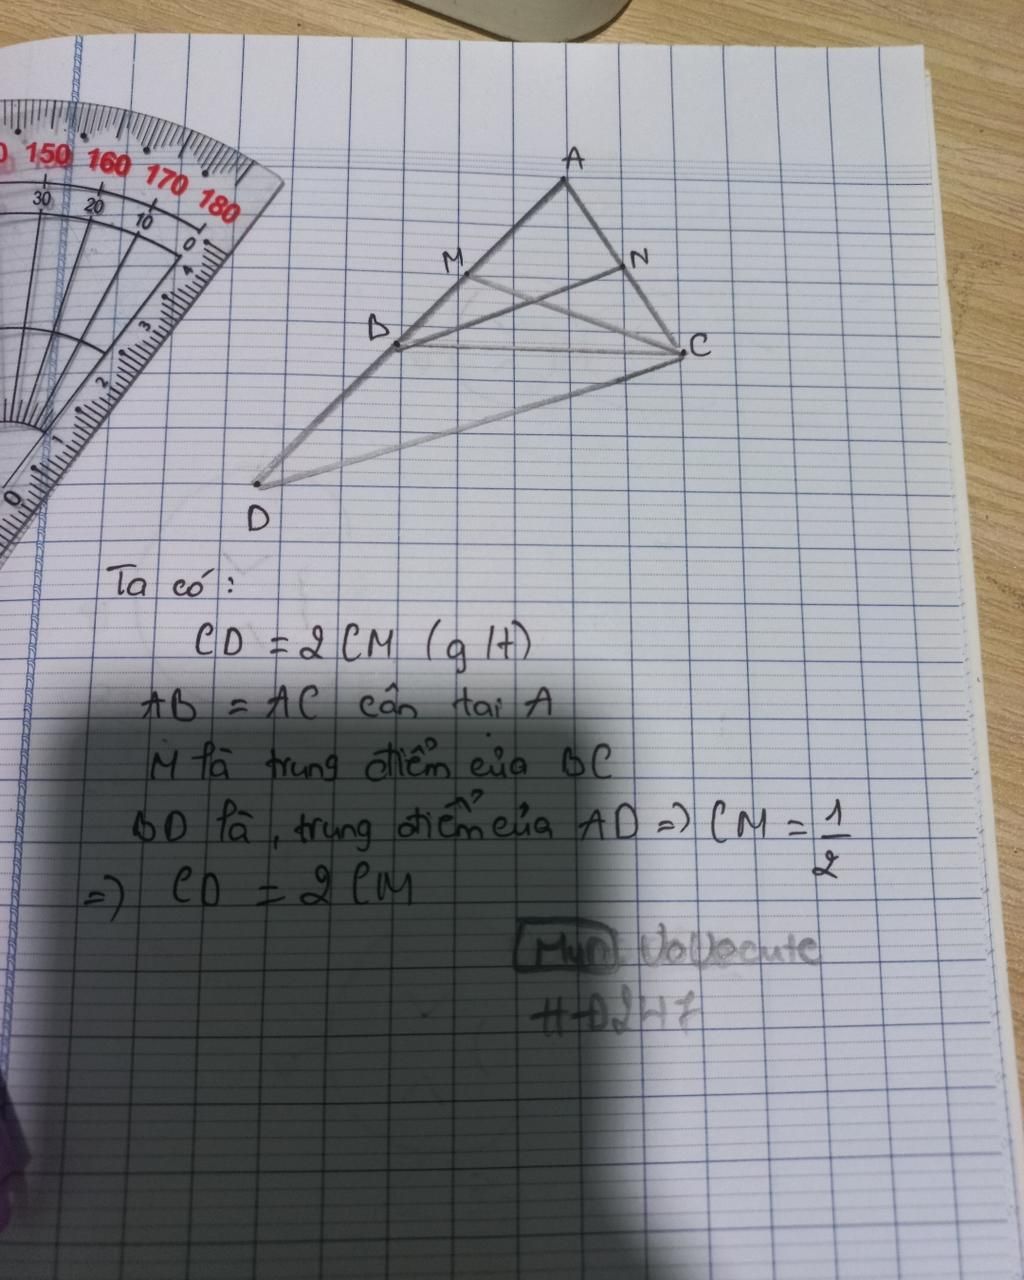 150 160 170 180
30 20 10 0
4
3
2
1
0
A
M N
B C
D
Ta có:
CD = 2 CM (g/t)
AB = AC cân tại A
M là trung điểm của BC
BD là, trung điểm của AD => CM = 1/2
=> CD = 2 CM
Mun